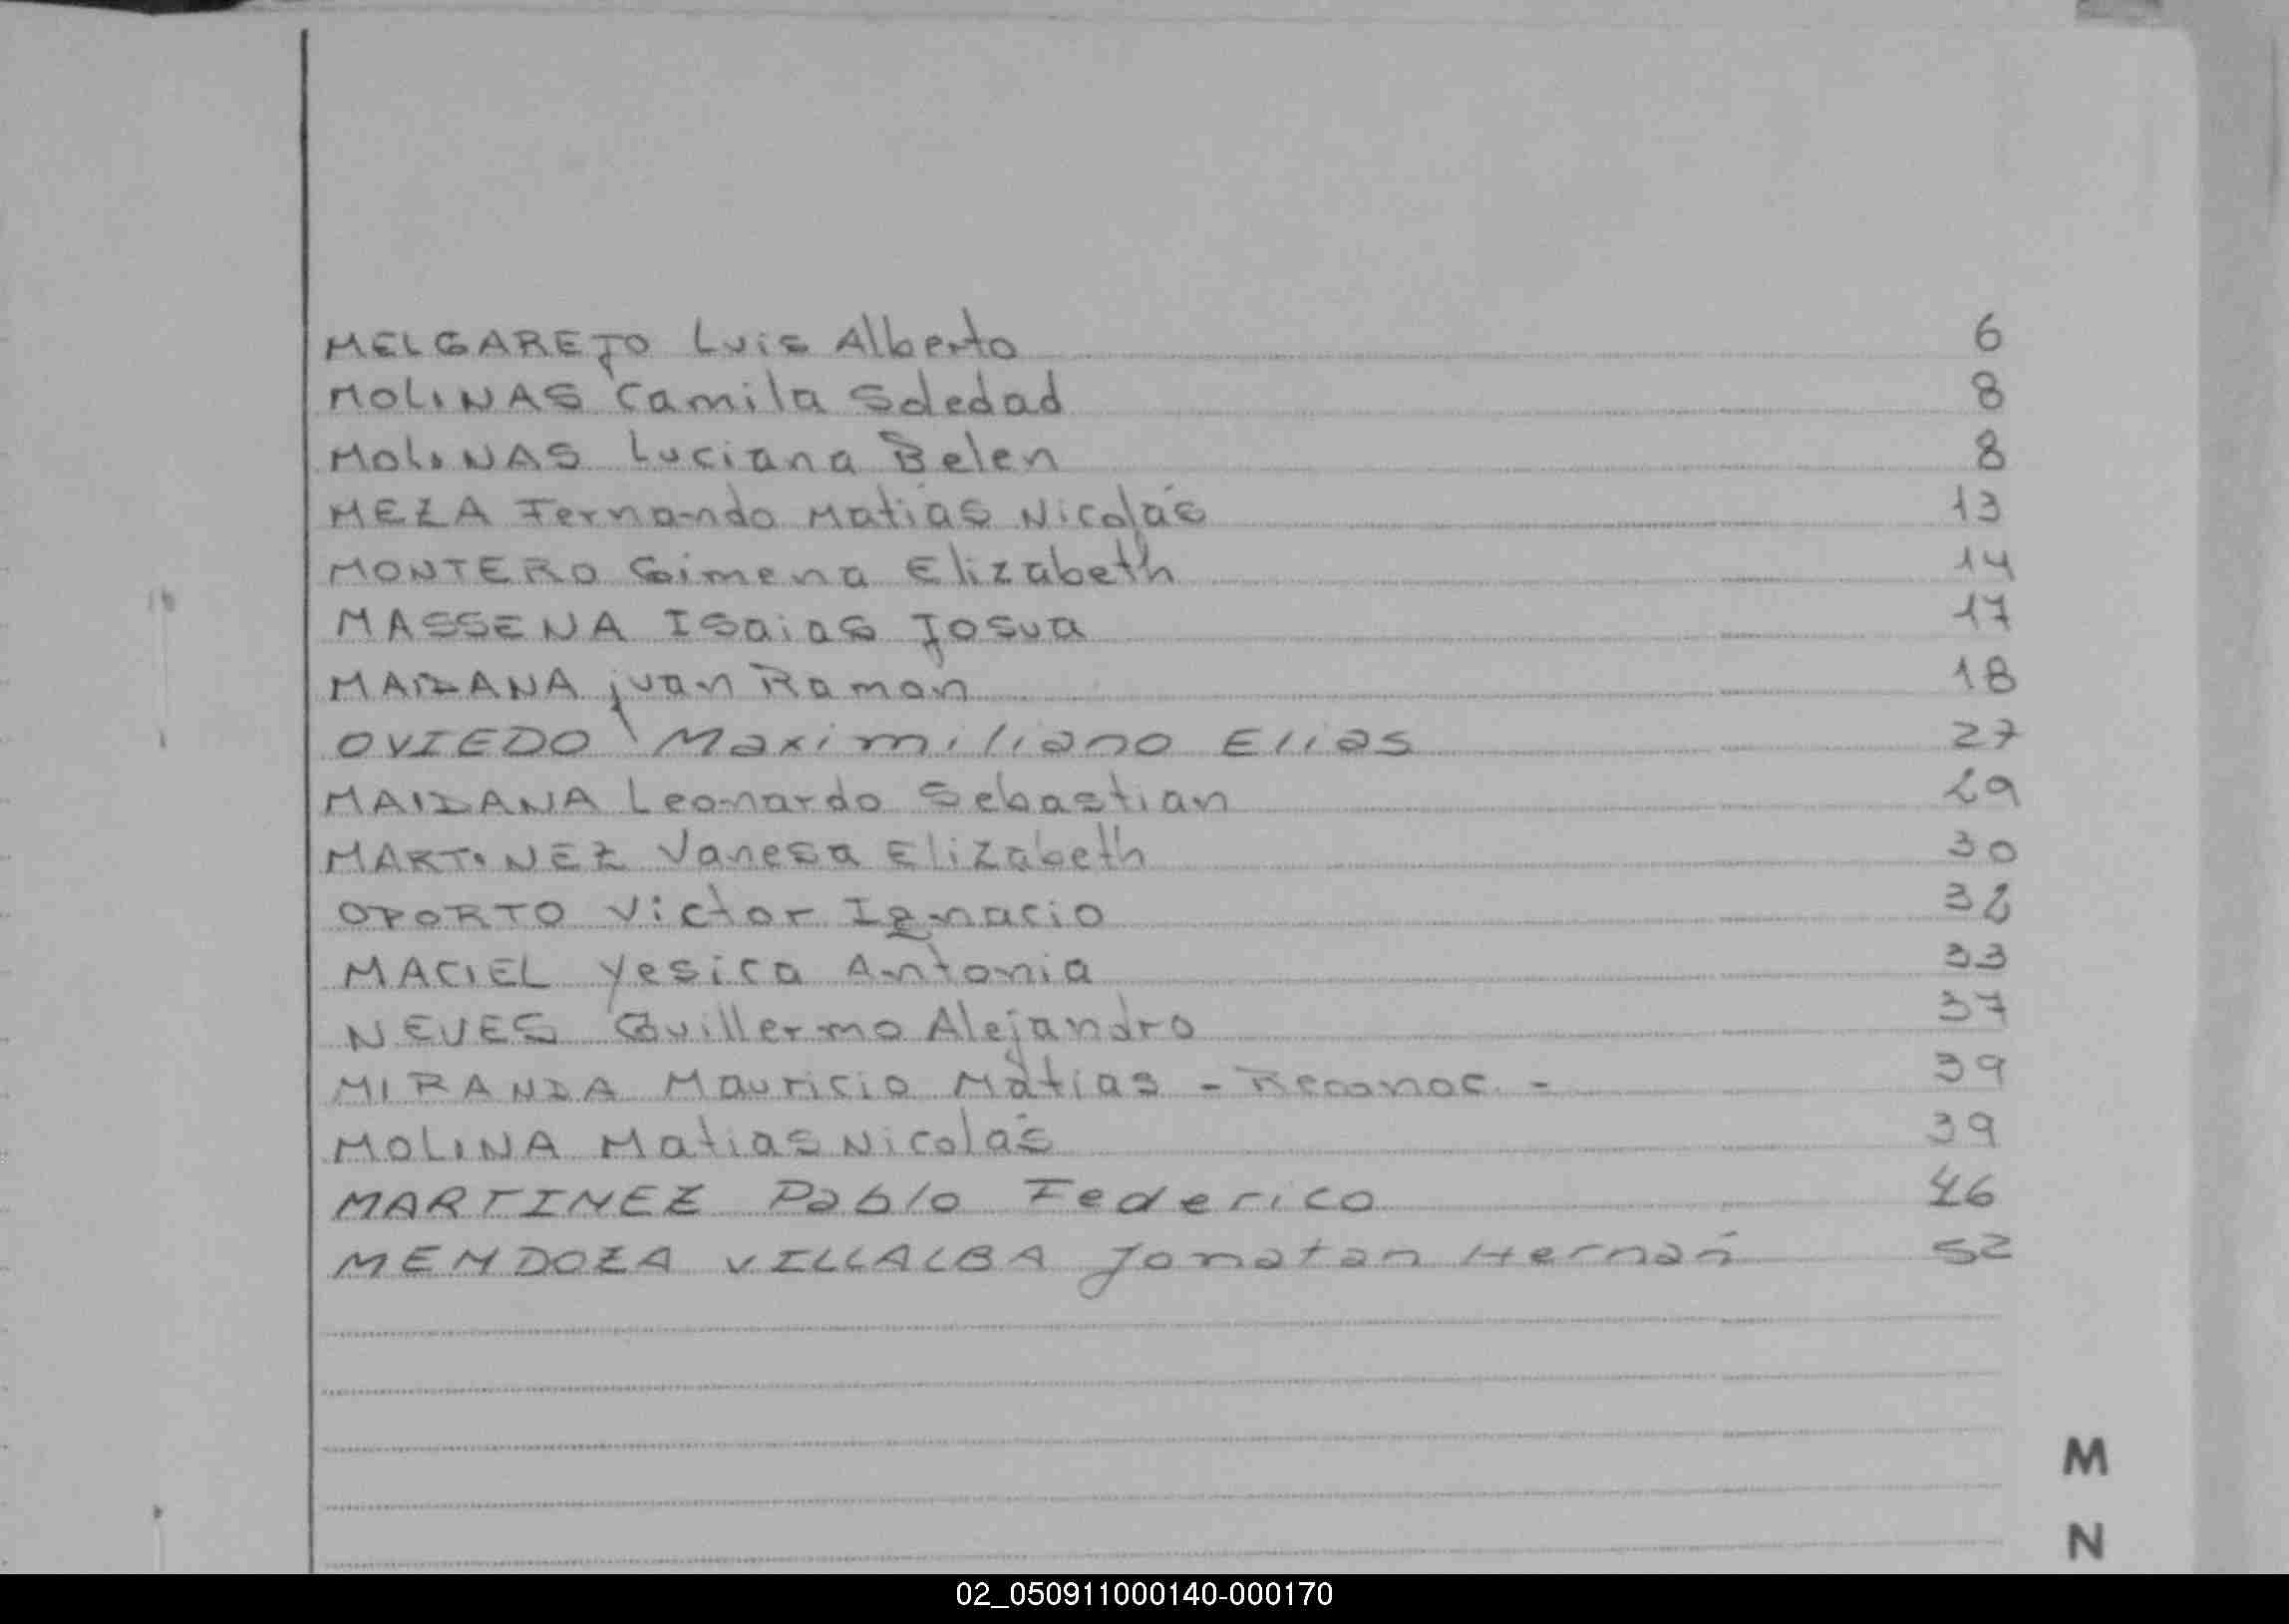 MELGAREJO Luis Alberto 6
MOLINAS Camila Soledad 8
MOLINAS Luciana Belen 8
MEZA Fernando Matias Nicolás 13
MONTERO Gimena Elizabeth 14
MASSENA Isaias Josua 17
MAIDANA juan Ramon 18
OVIEDO Maximiliano Elias 27
MAIDANA Leonardo Sebastian 29
MARTINEZ Vanesa Elizabeth 30
OPORTO Victor Ignacio
MACIEL Yesica Antonia 33
NEVES Guillermo Alejandro 37
MIRANDA Mauricio Matias - Reconoc. - 39
MOLINA Matias Nicolás 39
MARTINEZ Pablo Federico 46
MENDOZA VILLALBA Jonatan Hernán 52
M
N
02_050911000140-000170